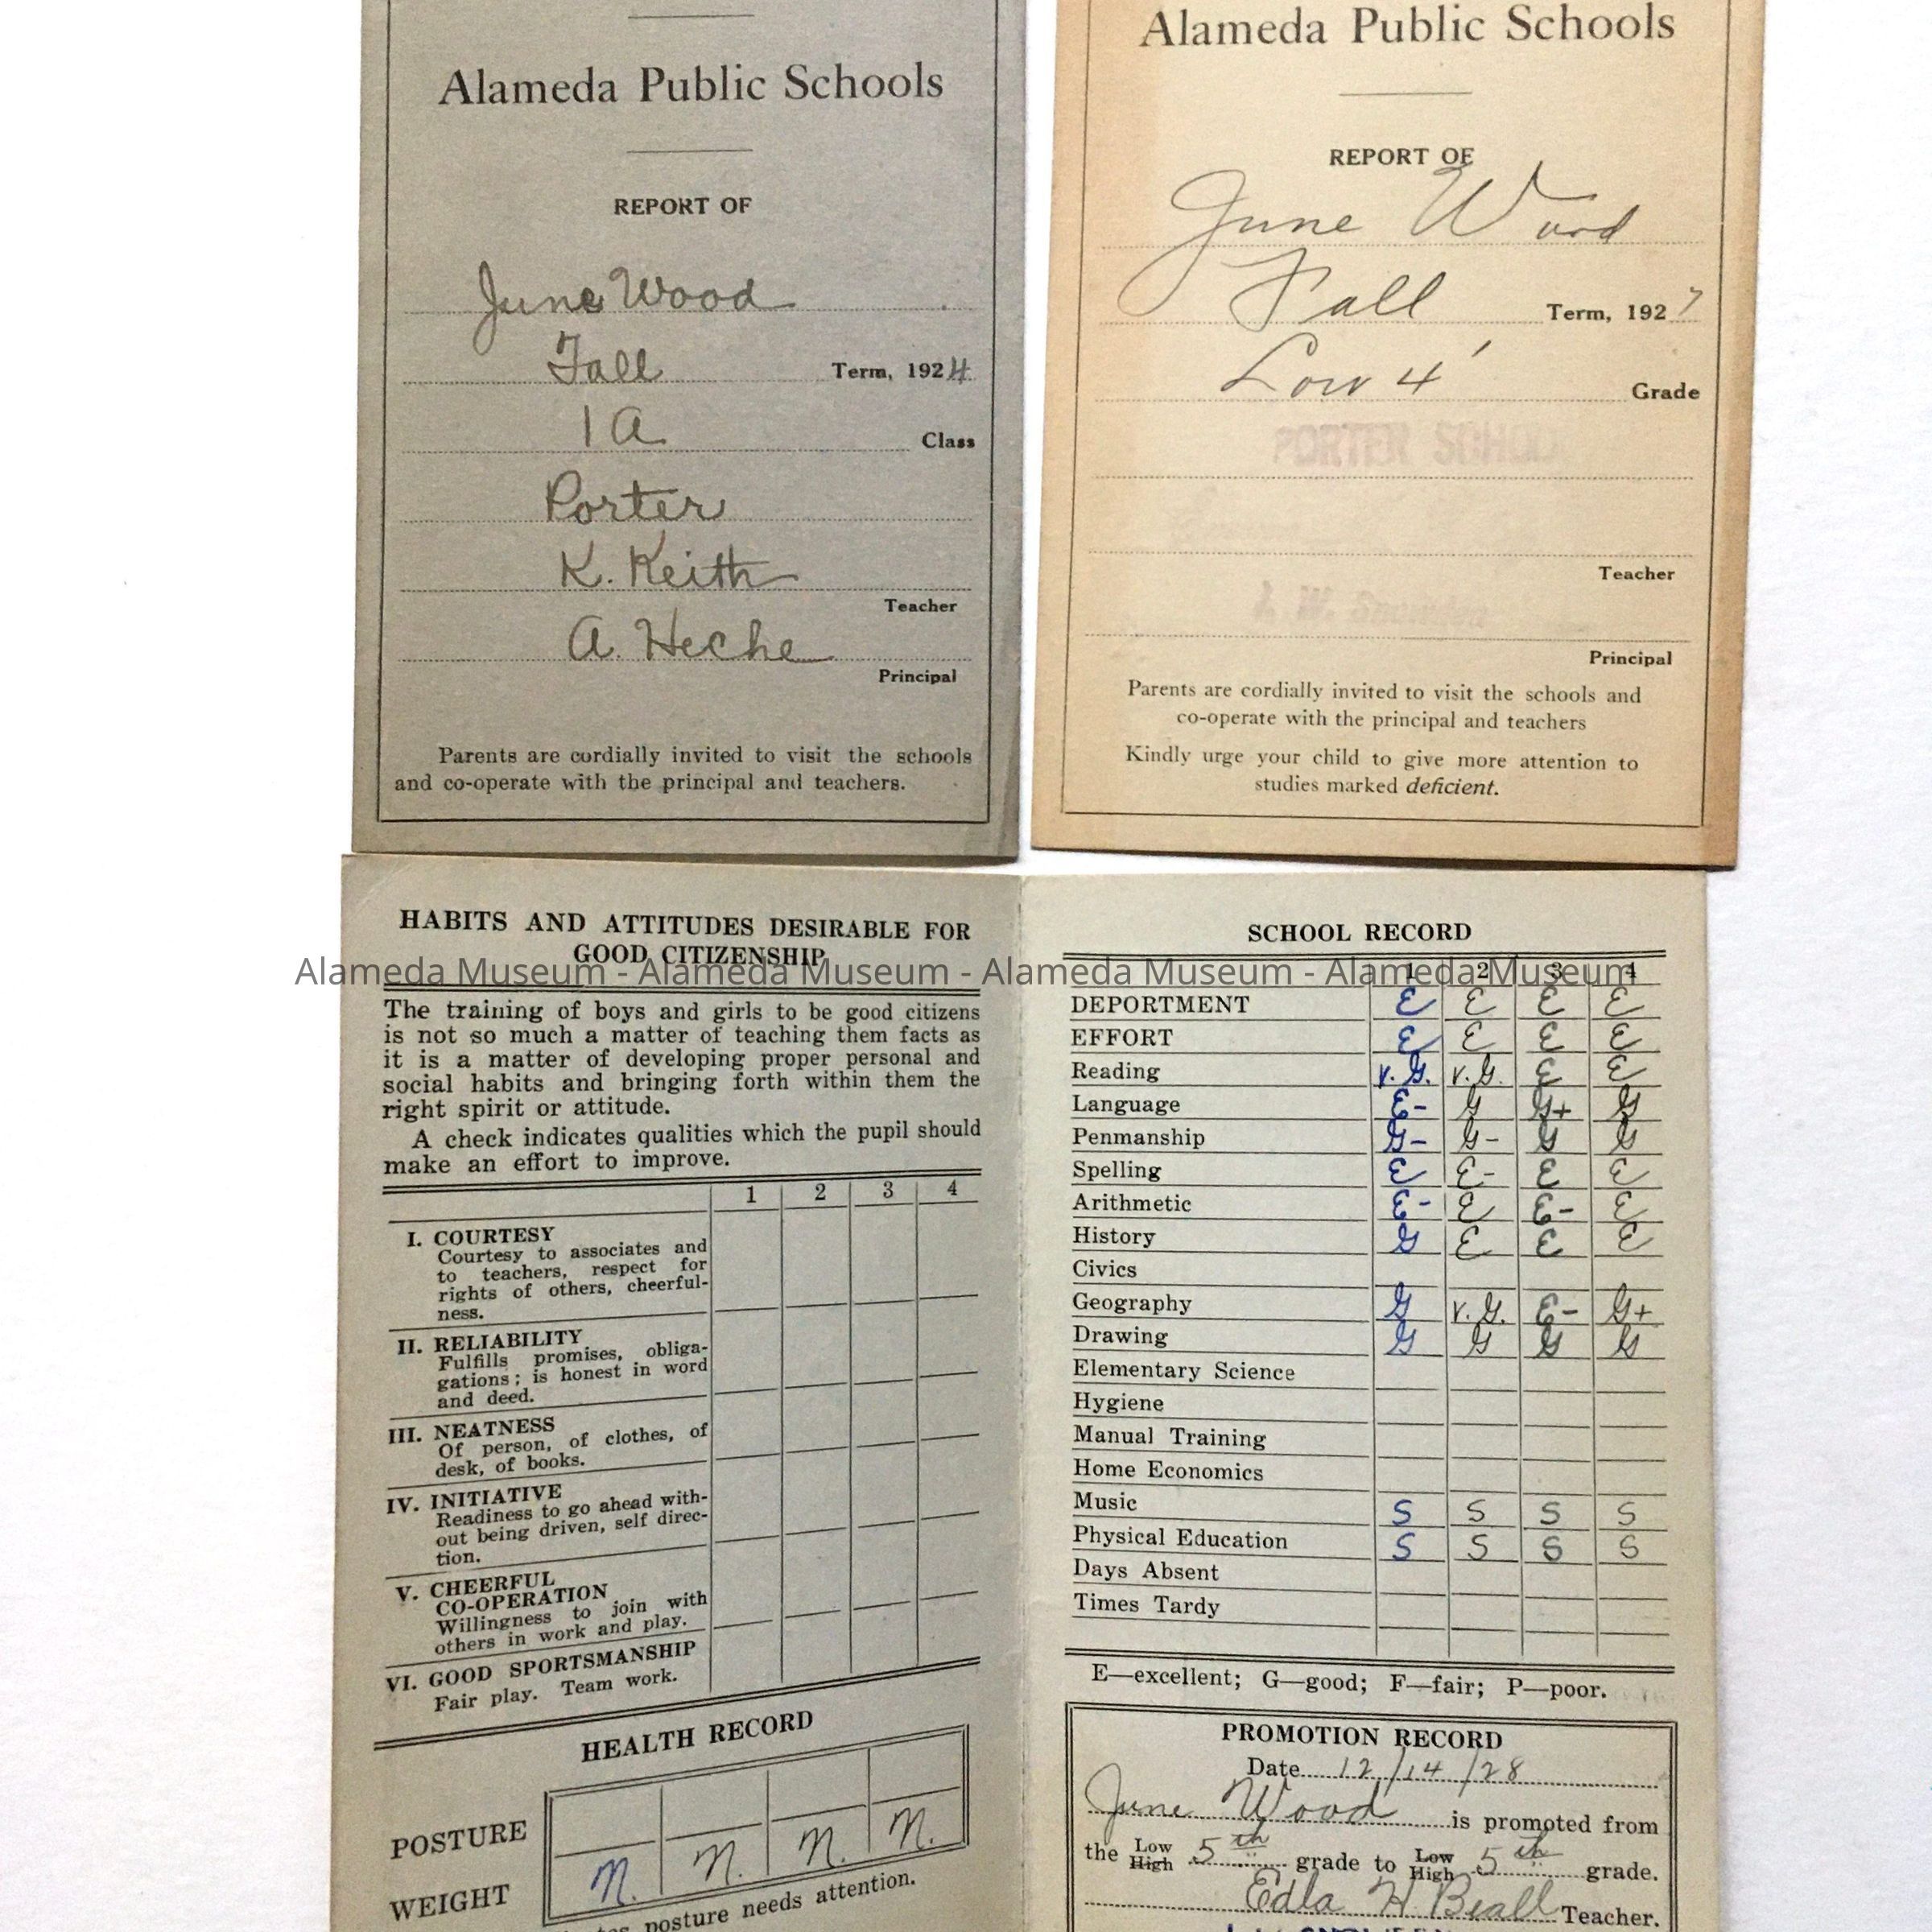 Alameda Public Schools
REPORT OF
June Wood
Fall Term, 1924
1A Class
Porter
K. Keith
Teacher
A. Heche
Principal
Parents are cordially invited to visit the schools
and co-operate with the principal and teachers.
Alameda Public Schools
REPORT OF
June Wood
Fall Term, 1927
Low 4 Grade
PORTER SCHOOL
Teacher
Principal
Parents are cordially invited to visit the schools and
co-operate with the principal and teachers
Kindly urge your child to give more attention to
studies marked deficient.
Alameda Museum - Alameda Museum - Alameda Museum - Alameda Museum
HABITS AND ATTITUDES DESIRABLE FOR
GOOD CITIZENSHIP
The training of boys and girls to be good citizens
is not so much a matter of teaching them facts as
it is a matter of developing proper personal and
social habits and bringing forth within them the
right spirit or attitude.
A check indicates qualities which the pupil should
make an effort to improve.
1 2 3 4
I. COURTESY
Courtesy to associates and
to teachers, respect for
rights of others, cheerful-
ness.
II. RELIABILITY
Fulfills promises, obliga-
gations; is honest in word
and deed.
III. NEATNESS
Of person, of clothes, of
desk, of books.
IV. INITIATIVE
Readiness to go ahead with-
out being driven, self direc-
tion.
V. CHEERFUL
CO-OPERATION
Willingness to join with
others in work and play.
VI. GOOD SPORTSMANSHIP
Fair play. Team work.
HEALTH RECORD
POSTURE
WEIGHT N. N. N. N.
posture needs attention.
SCHOOL RECORD
1 2 3 4
DEPORTMENT E E E E
EFFORT E E E E
Reading V.G. V.G. E E
Language E- G G+ G
Penmanship G- G- G G
Spelling E E- E E
Arithmetic E- E E- E
History G E E E
Civics
Geography G V.G. E- G+
Drawing G G G G
Elementary Science
Hygiene
Manual Training
Home Economics
Music S S S S
Physical Education S S S S
Days Absent
Times Tardy
E—excellent; G—good; F—fair; P—poor.
PROMOTION RECORD
Date 12/14/28
June Wood is promoted from
the Low High 5th grade to Low High 5th grade.
Edla H Beall Teacher.